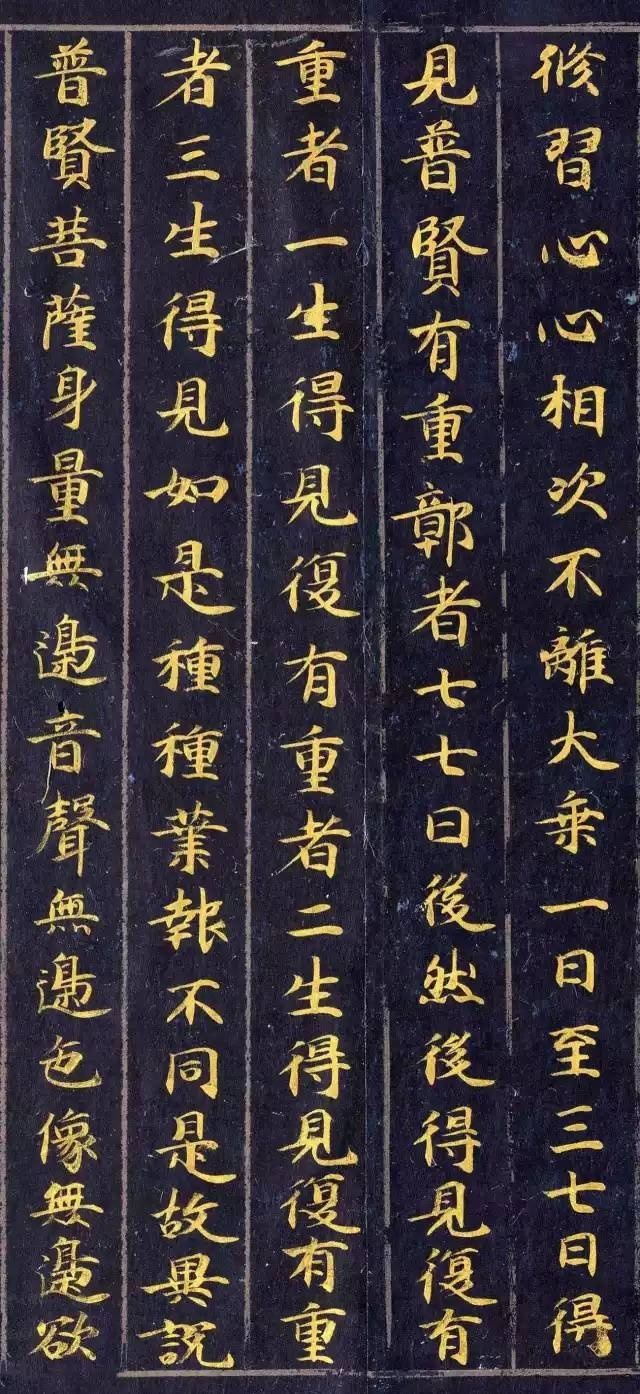 修習心心相次不離大乗一日至三七日得
見普賢有重鄣者七七日後然後得見復有
重者一生得見復有重者二生得見復有重
者三生得見如是種種業報不同是故異說
普賢菩薩身量無邊音聲無邊色像無邊欲